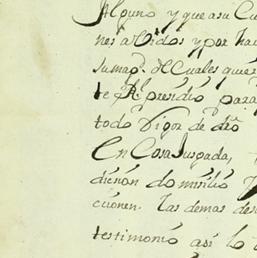 Alguno y que asi Cu
nes abidos y por hav
su mag.d de Cuales quier
te Rl presidio para
todo Vigor de dro
en Cosa Juspada,
dieron do misilio
cucnen. las demas de
testimonio asi lo